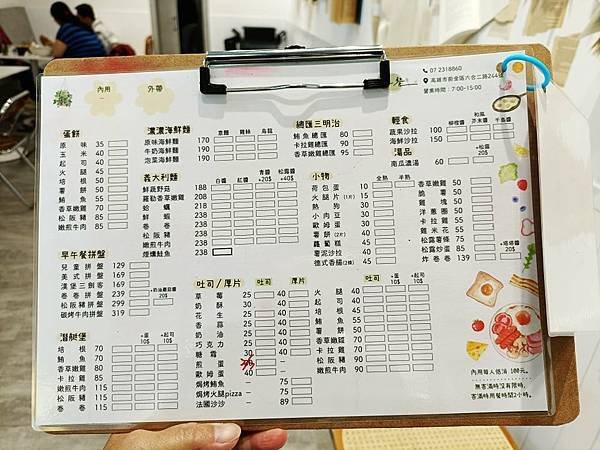 內用
外帶
07 2318860
高雄市前金區六合二路244號
營業時間：7:00-15:00
蛋餅
原味 35
玉米 40
起司 40
火腿 45
培根 50
薯餅 50
鮪魚 55
香草嫩雞 50
松阪豬 85
嫩煎牛肉 85
早午餐拼盤
兒童拼盤 129
美式拼盤 169
漢堡三劍客 169
卷卷拼盤 239 +奶油蘑菇醬 20$
松阪豬拼盤 299
碳烤牛肉拼盤 319
潛艇堡 +蛋 10$ +起司 10$
培根 70
鮪魚 70
香草嫩雞 85
卡拉雞 85
嫩煎牛肉 115
松阪豬 115
卷卷 115
濃濃海鮮麵 意麵 雞絲 烏龍
原味海鮮麵 170
牛奶海鮮麵 190
泡菜海鮮麵 190
義大利麵 白醬 紅醬 青醬 +20$ 松露醬 +40$
鮮蔬野菇 188
羅勒香草嫩雞 208
蛤蠣 238
鮮蝦 238
松阪豬 238
嫩煎牛肉 238
煙燻鮭魚 238
吐司/厚片 吐司 厚片
草莓 25 40
奶酥 30 40
花生 25 40
香蒜 25 40
奶油 25 40
巧克力 25 40
糖霜 30 40
煎蛋 30
歐姆蛋 40
焗烤鮪魚 － 75
焗烤火腿pizza － 75
法國沙沙 － 89
總匯三明治
鮪魚總匯 80
卡拉雞總匯 90
香草嫩雞總匯 95
小物 全熟 半熟
荷包蛋 10
火腿片(1片) 15
熱狗 30
小肉豆 30
歐姆蛋 30
薯餅(2片) 40
蘿蔔糕 40
薯泥沙拉 40
德式香腸(2條) 45
吐司 +蛋 10$ +起司 10$
火腿 40
起司 40
培根 50
鮪魚 50
薯餅 50
香草嫩雞 50
卡拉雞 50
松阪豬 90
嫩煎牛肉 90
輕食 柳橙醬 和風芥末醬 千島醬
蔬果沙拉 100
海鮮沙拉 150
湯品 +松露 20$
南瓜濃湯 60
香草嫩雞 50
脆薯 50
雞塊 50
洋蔥圈 50
卡拉雞 50
雞米花 50
松露薯條 75
松露炒蛋 75
炸卷卷 139 +塔塔醬 20$
內用每人低消 100元。
無客滿時沒有限時，
客滿時用餐時間2小時。